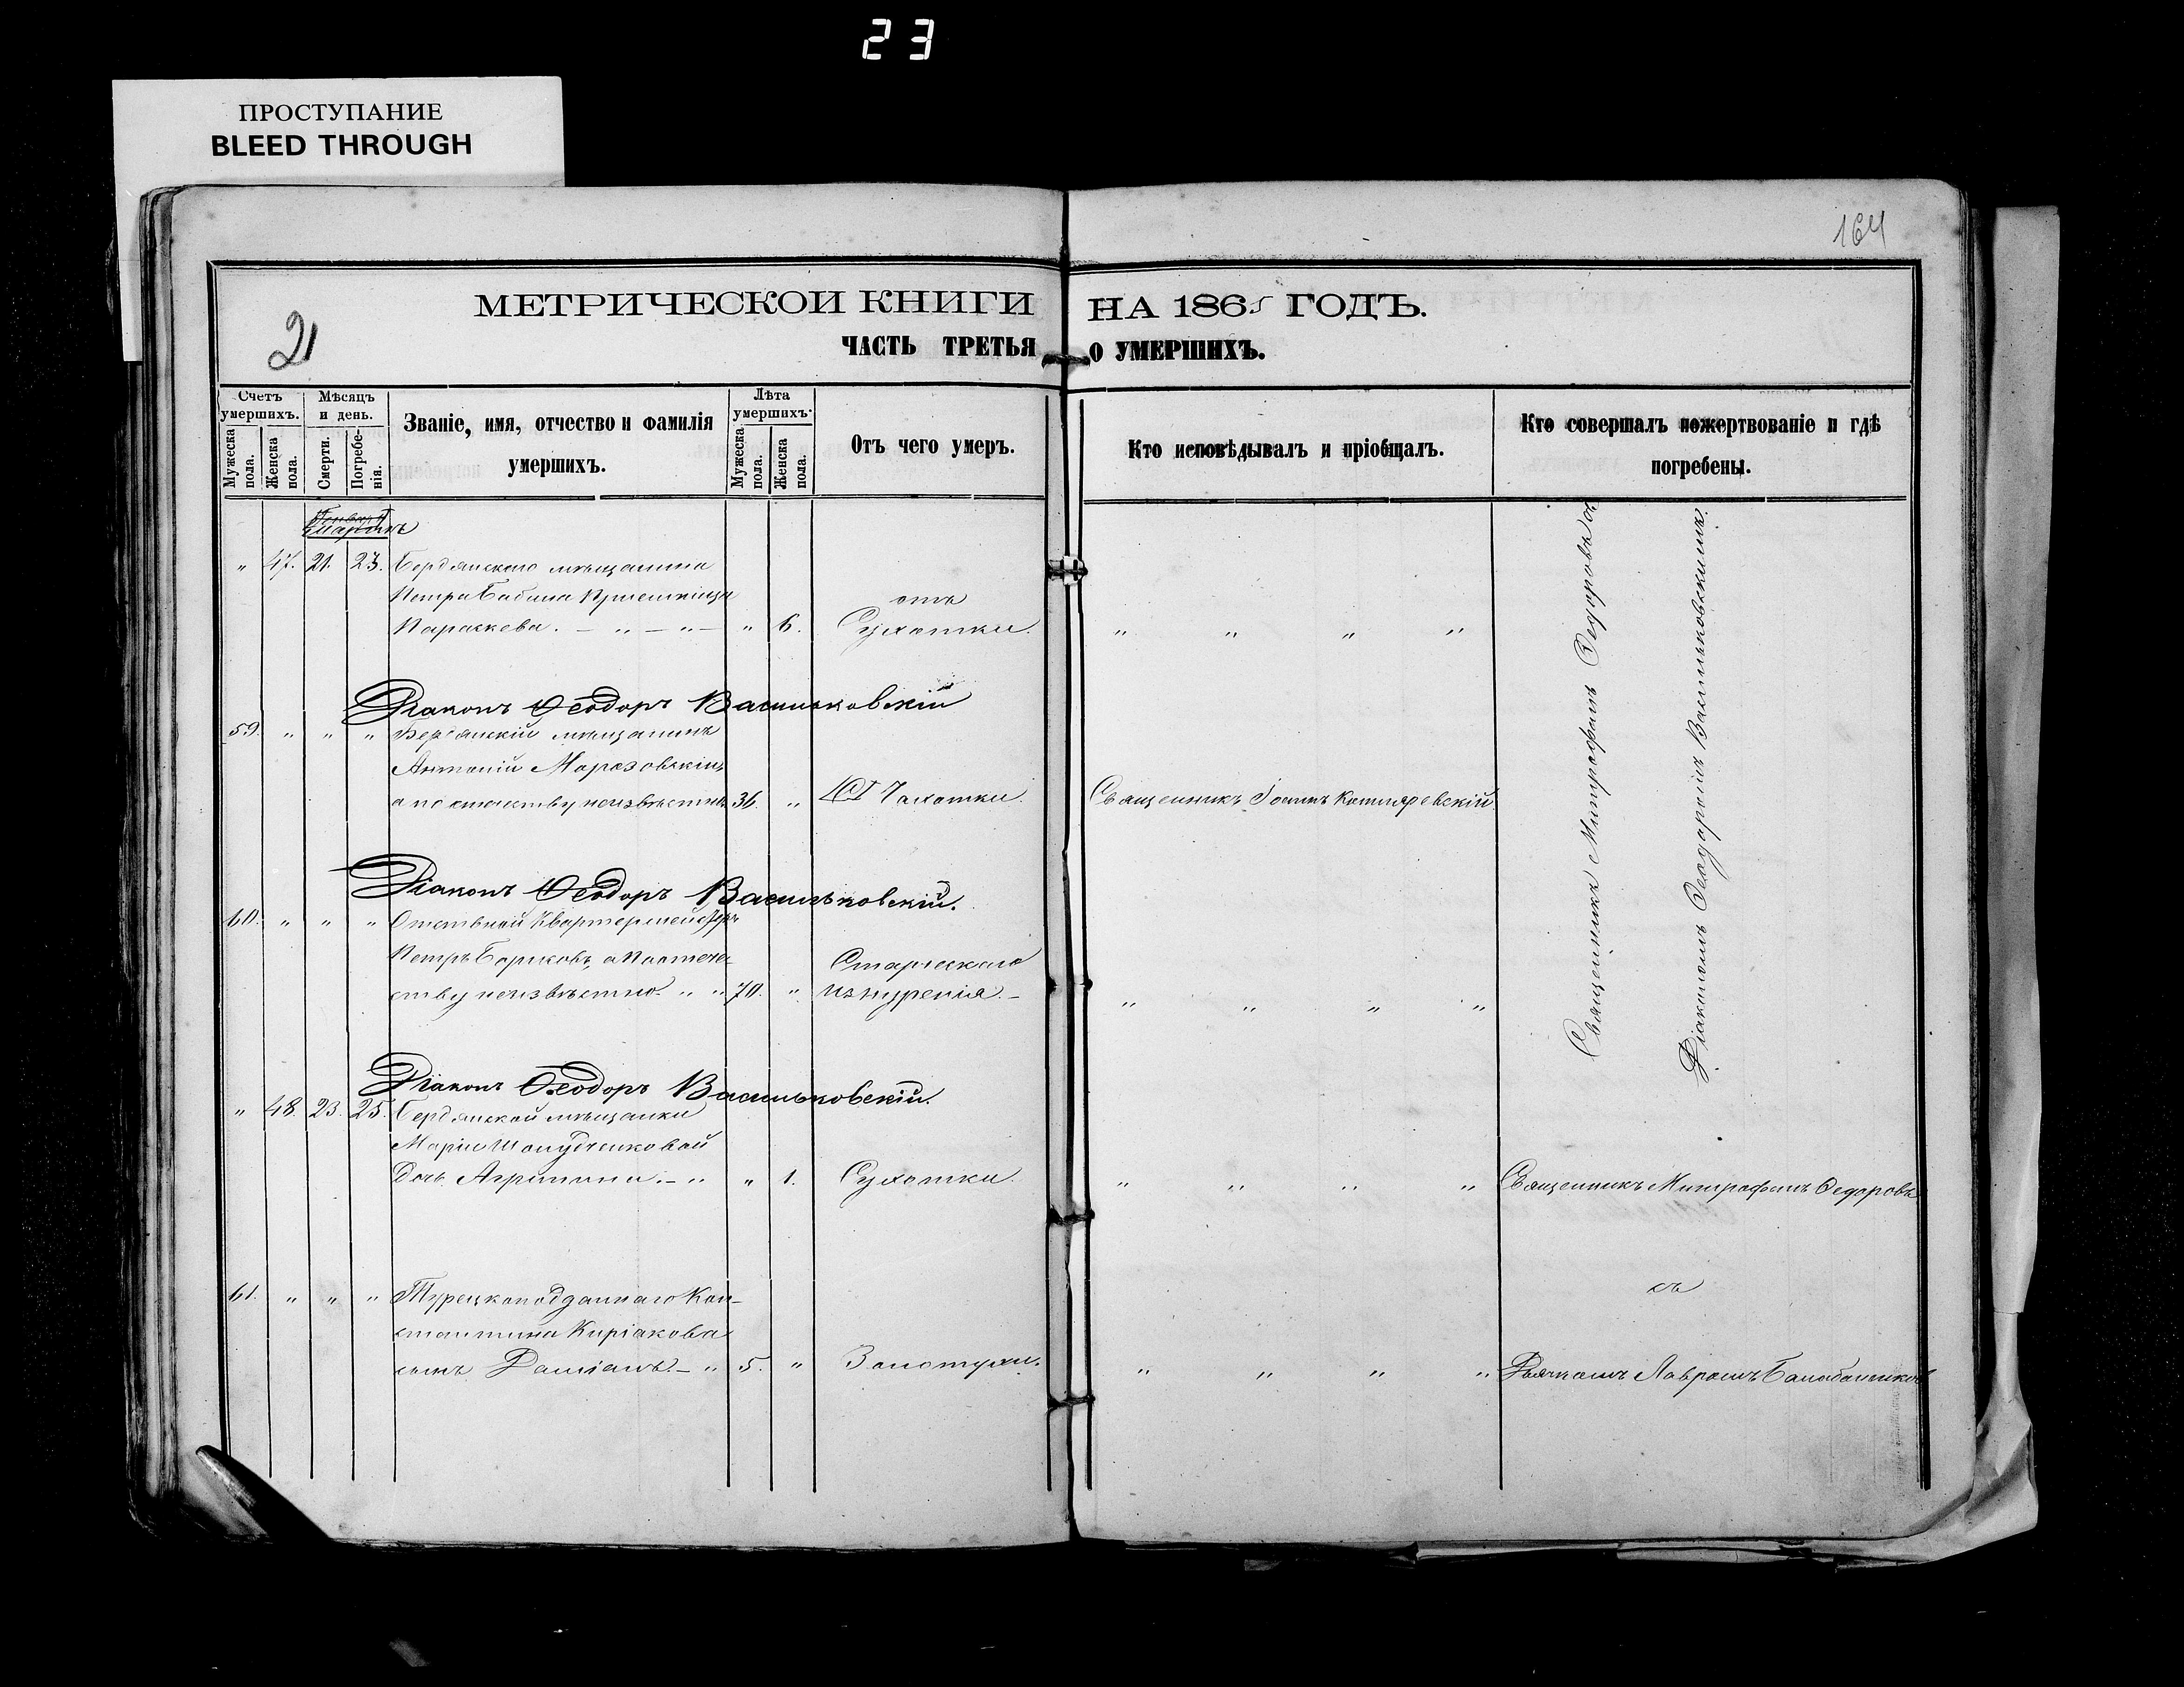 23
ПРОСТУПАНИЕ
BLEED THROUGH
164
21
МЕТРИЧЕСКОЙ КНИГИ НА 1865 ГОДЪ.
ЧАСТЬ ТРЕТЬЯ О УМЕРШИХЪ.
Счетъ умершихъ.
Мужеска пола.
Женска пола.
Мѣсяцъ и день.
Смерти.
Погребенія.
Званіе, имя, отчество и фамилія
умершихъ.
Лѣта умершихъ.
Мужеска пола.
Женска пола.
Отъ чего умеръ.
Кто исповѣдывалъ и пріобщалъ.
Кто совершалъ пожертвованіе и гдѣ
погребены.
Мартъ
" 47. 21. 23. Бердянскаго мѣщанина
Петра Бабина
отъ
Параскева. — " — " — " 6. Сухотки. " " " "
Діаконъ Ѳеодоръ Васильковскій
59. " " " Бердянскій мѣщанинъ
Антоній Морозовскій,
а по отчеству неизвѣстно 36. " Отъ Чахотки. Священникъ Іоаннъ Котляревскій.
Діаконъ Ѳеодоръ Васильковскій.
60. " " " Отставной Квартермейстръ
Петръ Борисовъ, а по отече- Старческаго
ству неизвѣстно. " " 70. " изнуренія. — " " " "
Священникъ Митрофанъ Ѳедоровъ съ
Діакономъ Ѳеодоромъ Васильковскимъ.
Діаконъ Ѳеодоръ Васильковскій.
" 48. 23. 25. Бердянской мѣщанки
Маріи
Дочь Агрипина. — " " 1. Сухотки. " " " " Священникъ Митрофанъ Ѳедоровъ
съ
61. " " " Турецкоподданнаго Кон-
стантина Киріакова
сынъ Даміанъ. — " 5. " Золотухи. " " " " Дьячкомъ Лавромъ